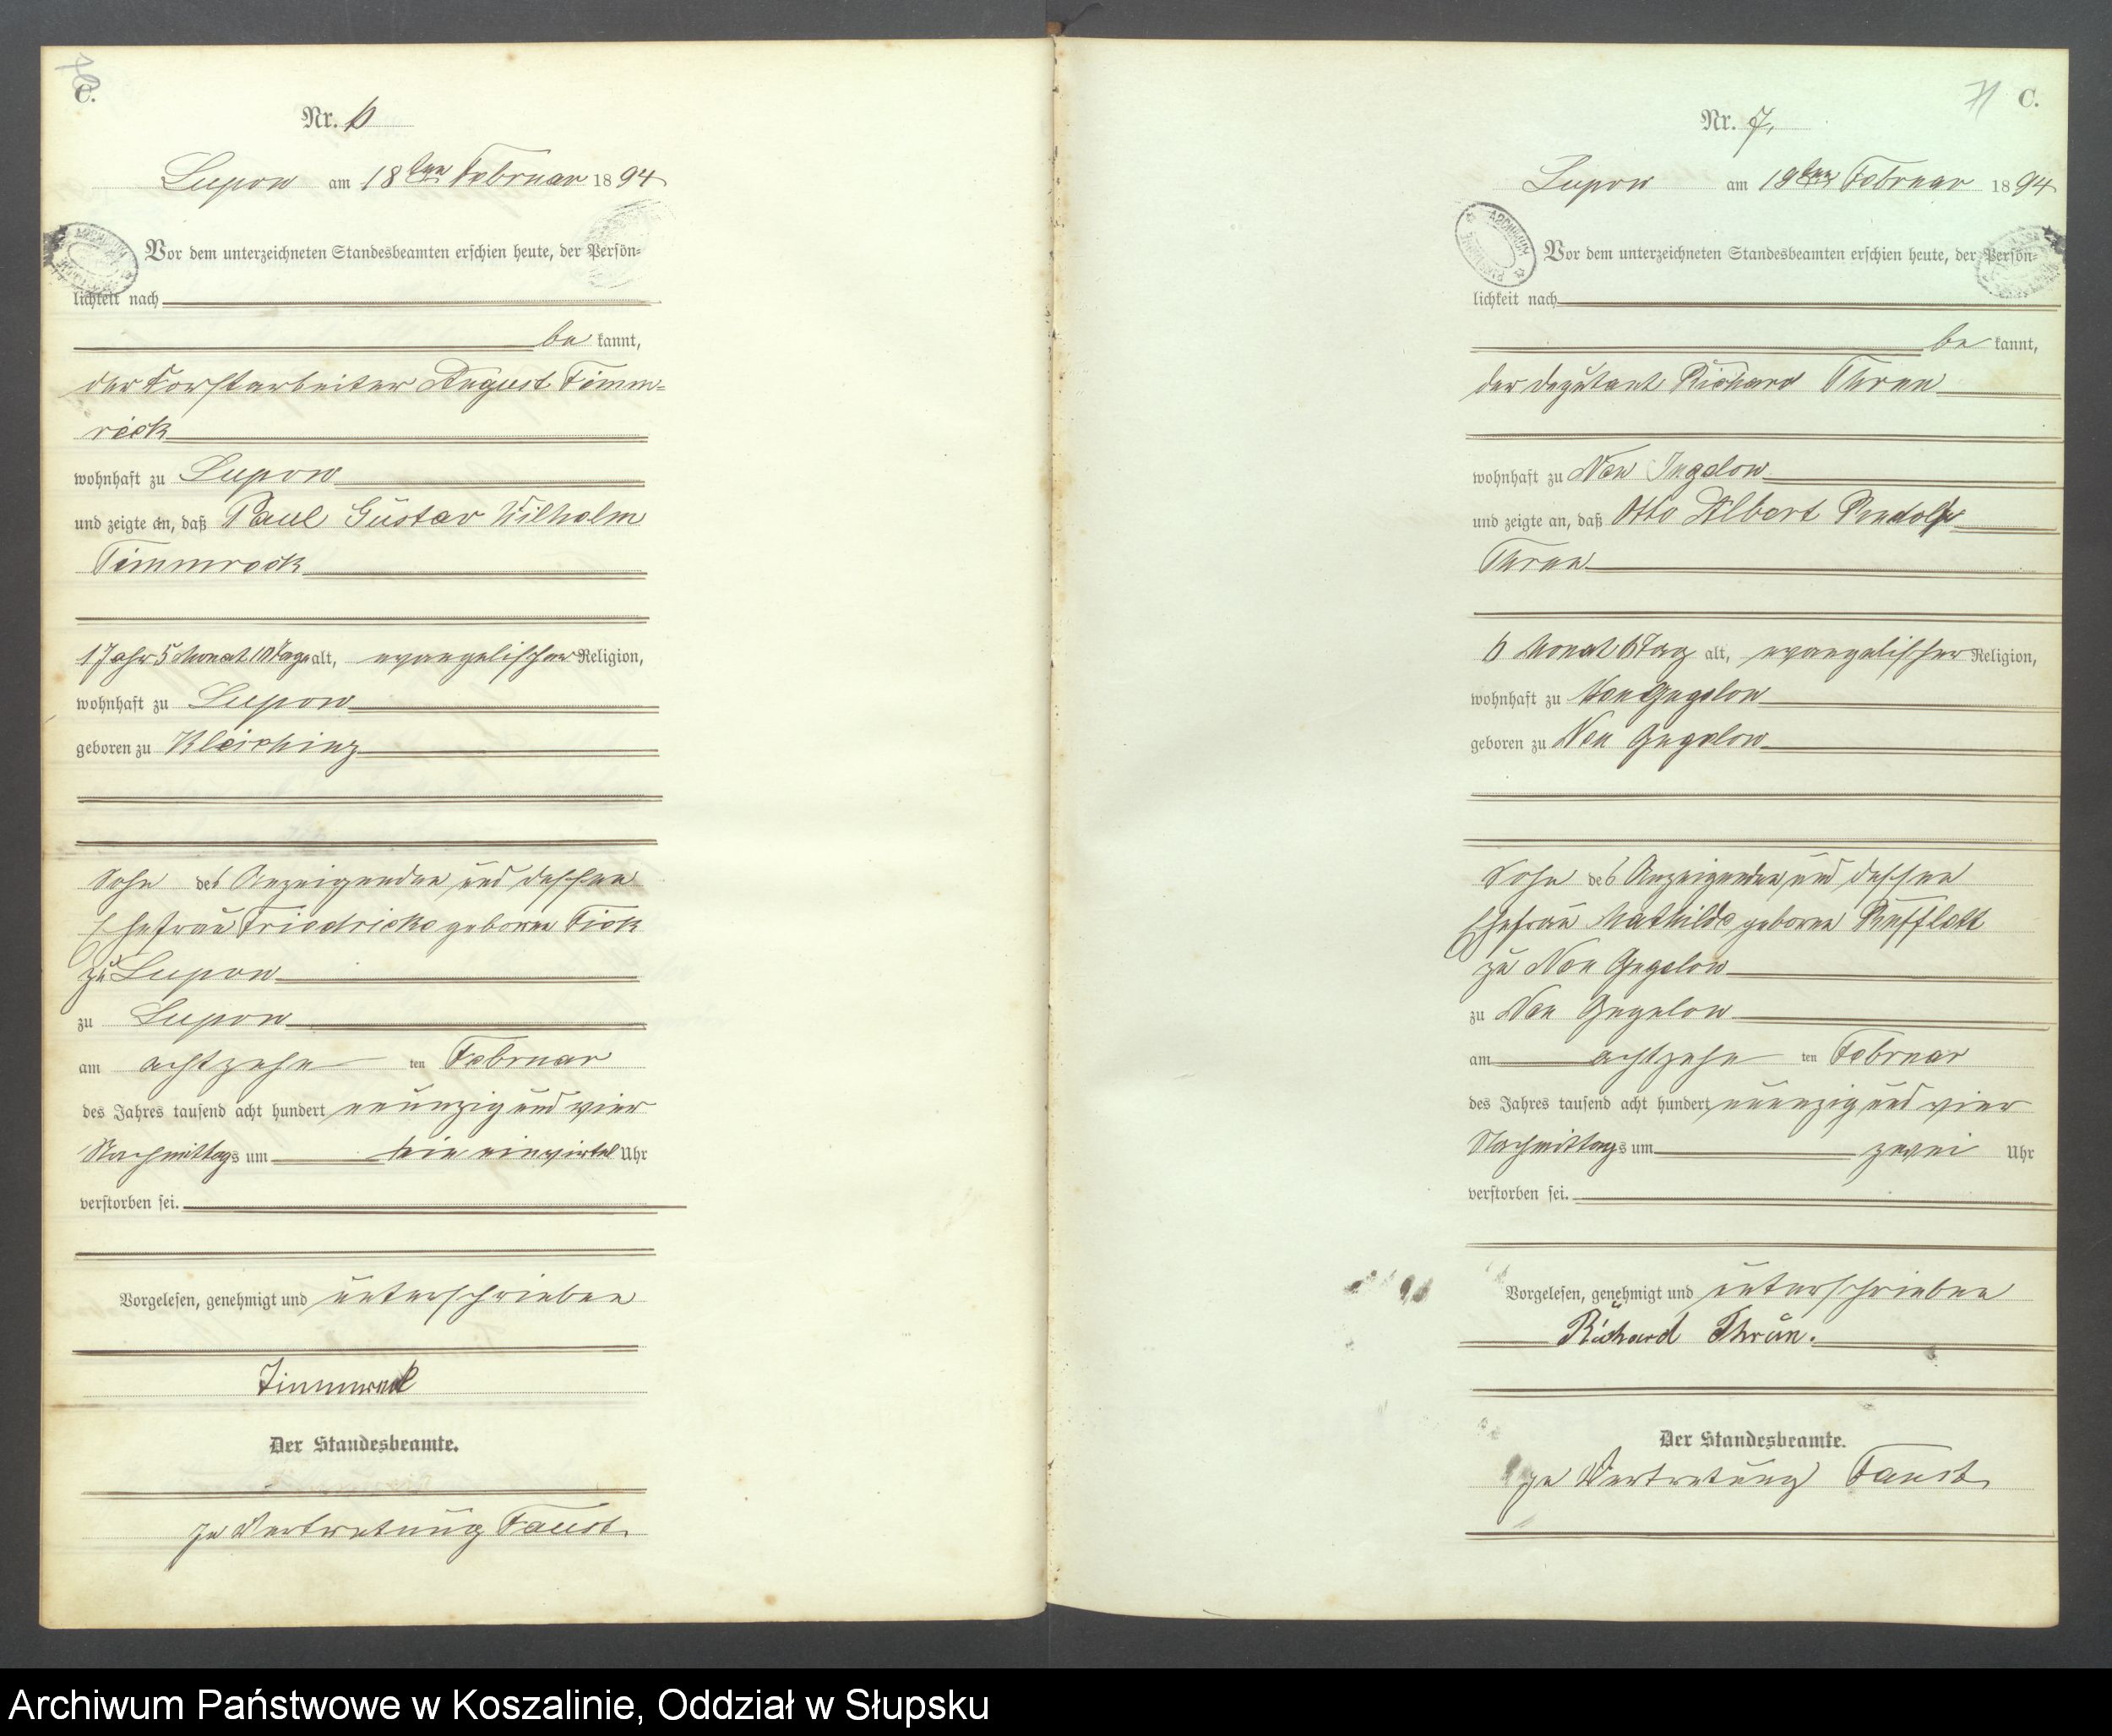 C.
Nr. 6
Lupow am 18ten Februar 1894
Vor dem unterzeichneten Standesbeamten erschien heute, der Persön-
lichkeit nach
be kannt,
der Forstarbeiter August Timm-
reck
wohnhaft zu Lupow
und zeigte an, daß Paul Gustav Wilhelm
Timmreck
1 Jahr 5 Monat 10 Tage alt, evangelischer Religion,
wohnhaft zu Lupow
geboren zu
Sohn des Anzeigenden und dessen
Ehefrau Friedricke geborne Fick
zu Lupow
zu Lupow
am achtzehn ten Februar
des Jahres tausend acht hundert neunzig und vier
Nachmittags um ein viertel Uhr
verstorben sei.
Vorgelesen, genehmigt und unterschrieben
Timmreck
Der Standesbeamte.
In Vertretung Faust.
71 C.
Nr. 7.
Lupow am 19ten Februar 1894
Vor dem unterzeichneten Standesbeamten erschien heute, der Persön-
lichkeit nach
be kannt,
der Deputant Richard Thrun
wohnhaft zu Neu Jugelow
und zeigte an, daß Otto Albert Rudolf
Thrun
6 Monat 6 Tag alt, evangelischer Religion,
wohnhaft zu Neu Jugelow
geboren zu Neu Jugelow
Sohn des Anzeigenden und dessen
Ehefrau Mathilde geborne
zu Neu Jugelow
zu Neu Jugelow
am achtzehn ten Februar
des Jahres tausend acht hundert neunzig und vier
Nachmittags um zwei Uhr
verstorben sei.
Vorgelesen, genehmigt und unterschrieben
Richard Thrun.
Der Standesbeamte.
In Vertretung Faust
Archiwum Państwowe w Koszalinie, Oddział w Słupsku